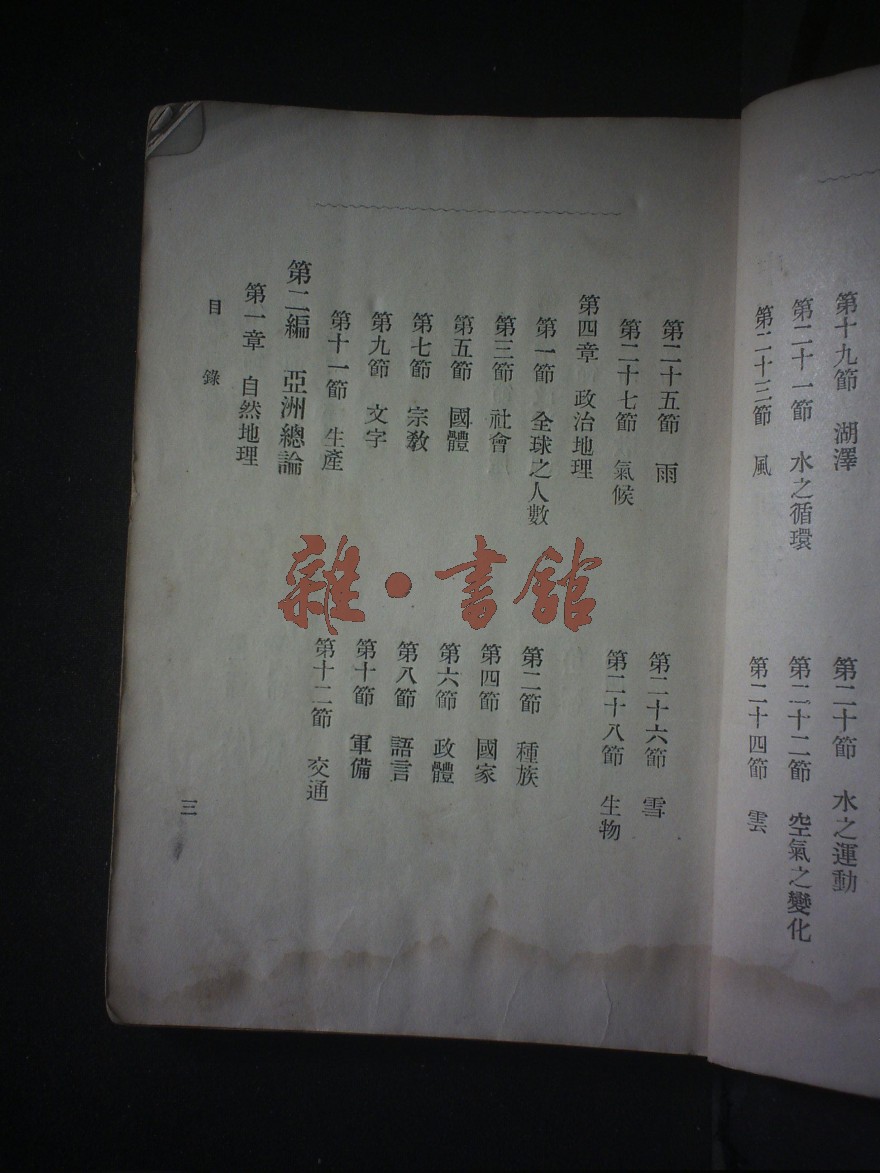 第十九節　湖澤
第二十節　水之運動
第二十一節　水之循環
第二十二節　空氣之變化
第二十三節　風
第二十四節　雲
第二十五節　雨
第二十六節　雪
第二十七節　氣候
第二十八節　生物
第四章　政治地理
第一節　全球之人數
第二節　種族
第三節　社會
第四節　國家
第五節　國體
第六節　政體
第七節　宗教
第八節　語言
第九節　文字
第十節　軍備
第十一節　生產
第十二節　交通
第二編　亞洲總論
第一章　自然地理
目錄
三
雜·書館